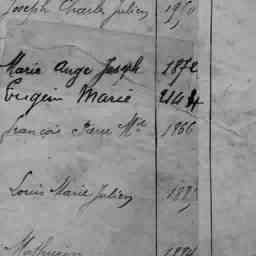 Joseph Charles Julien
Marie Ange Joseph 1872
Eugein Marie
François Pierre Mie 1866
Louis Marie Julien
Mathurin 1884